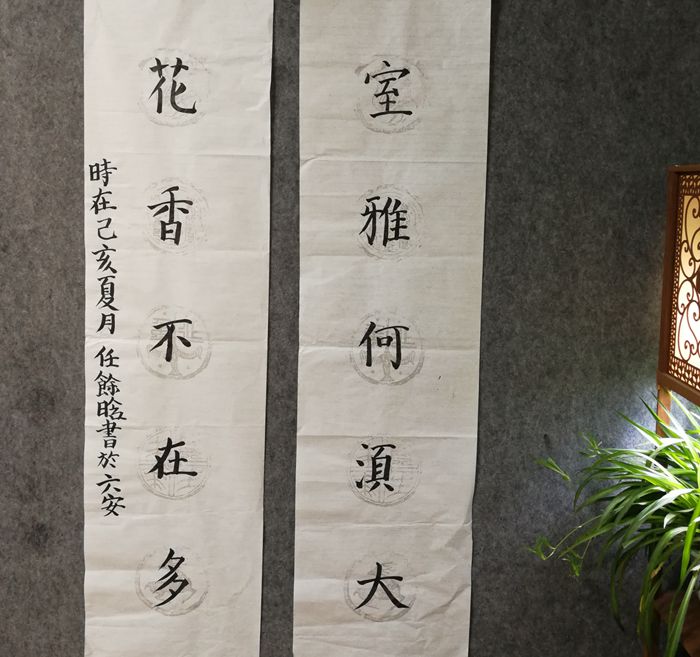 室雅何須大
花香不在多
時在己亥夏月任餘晗書於六安